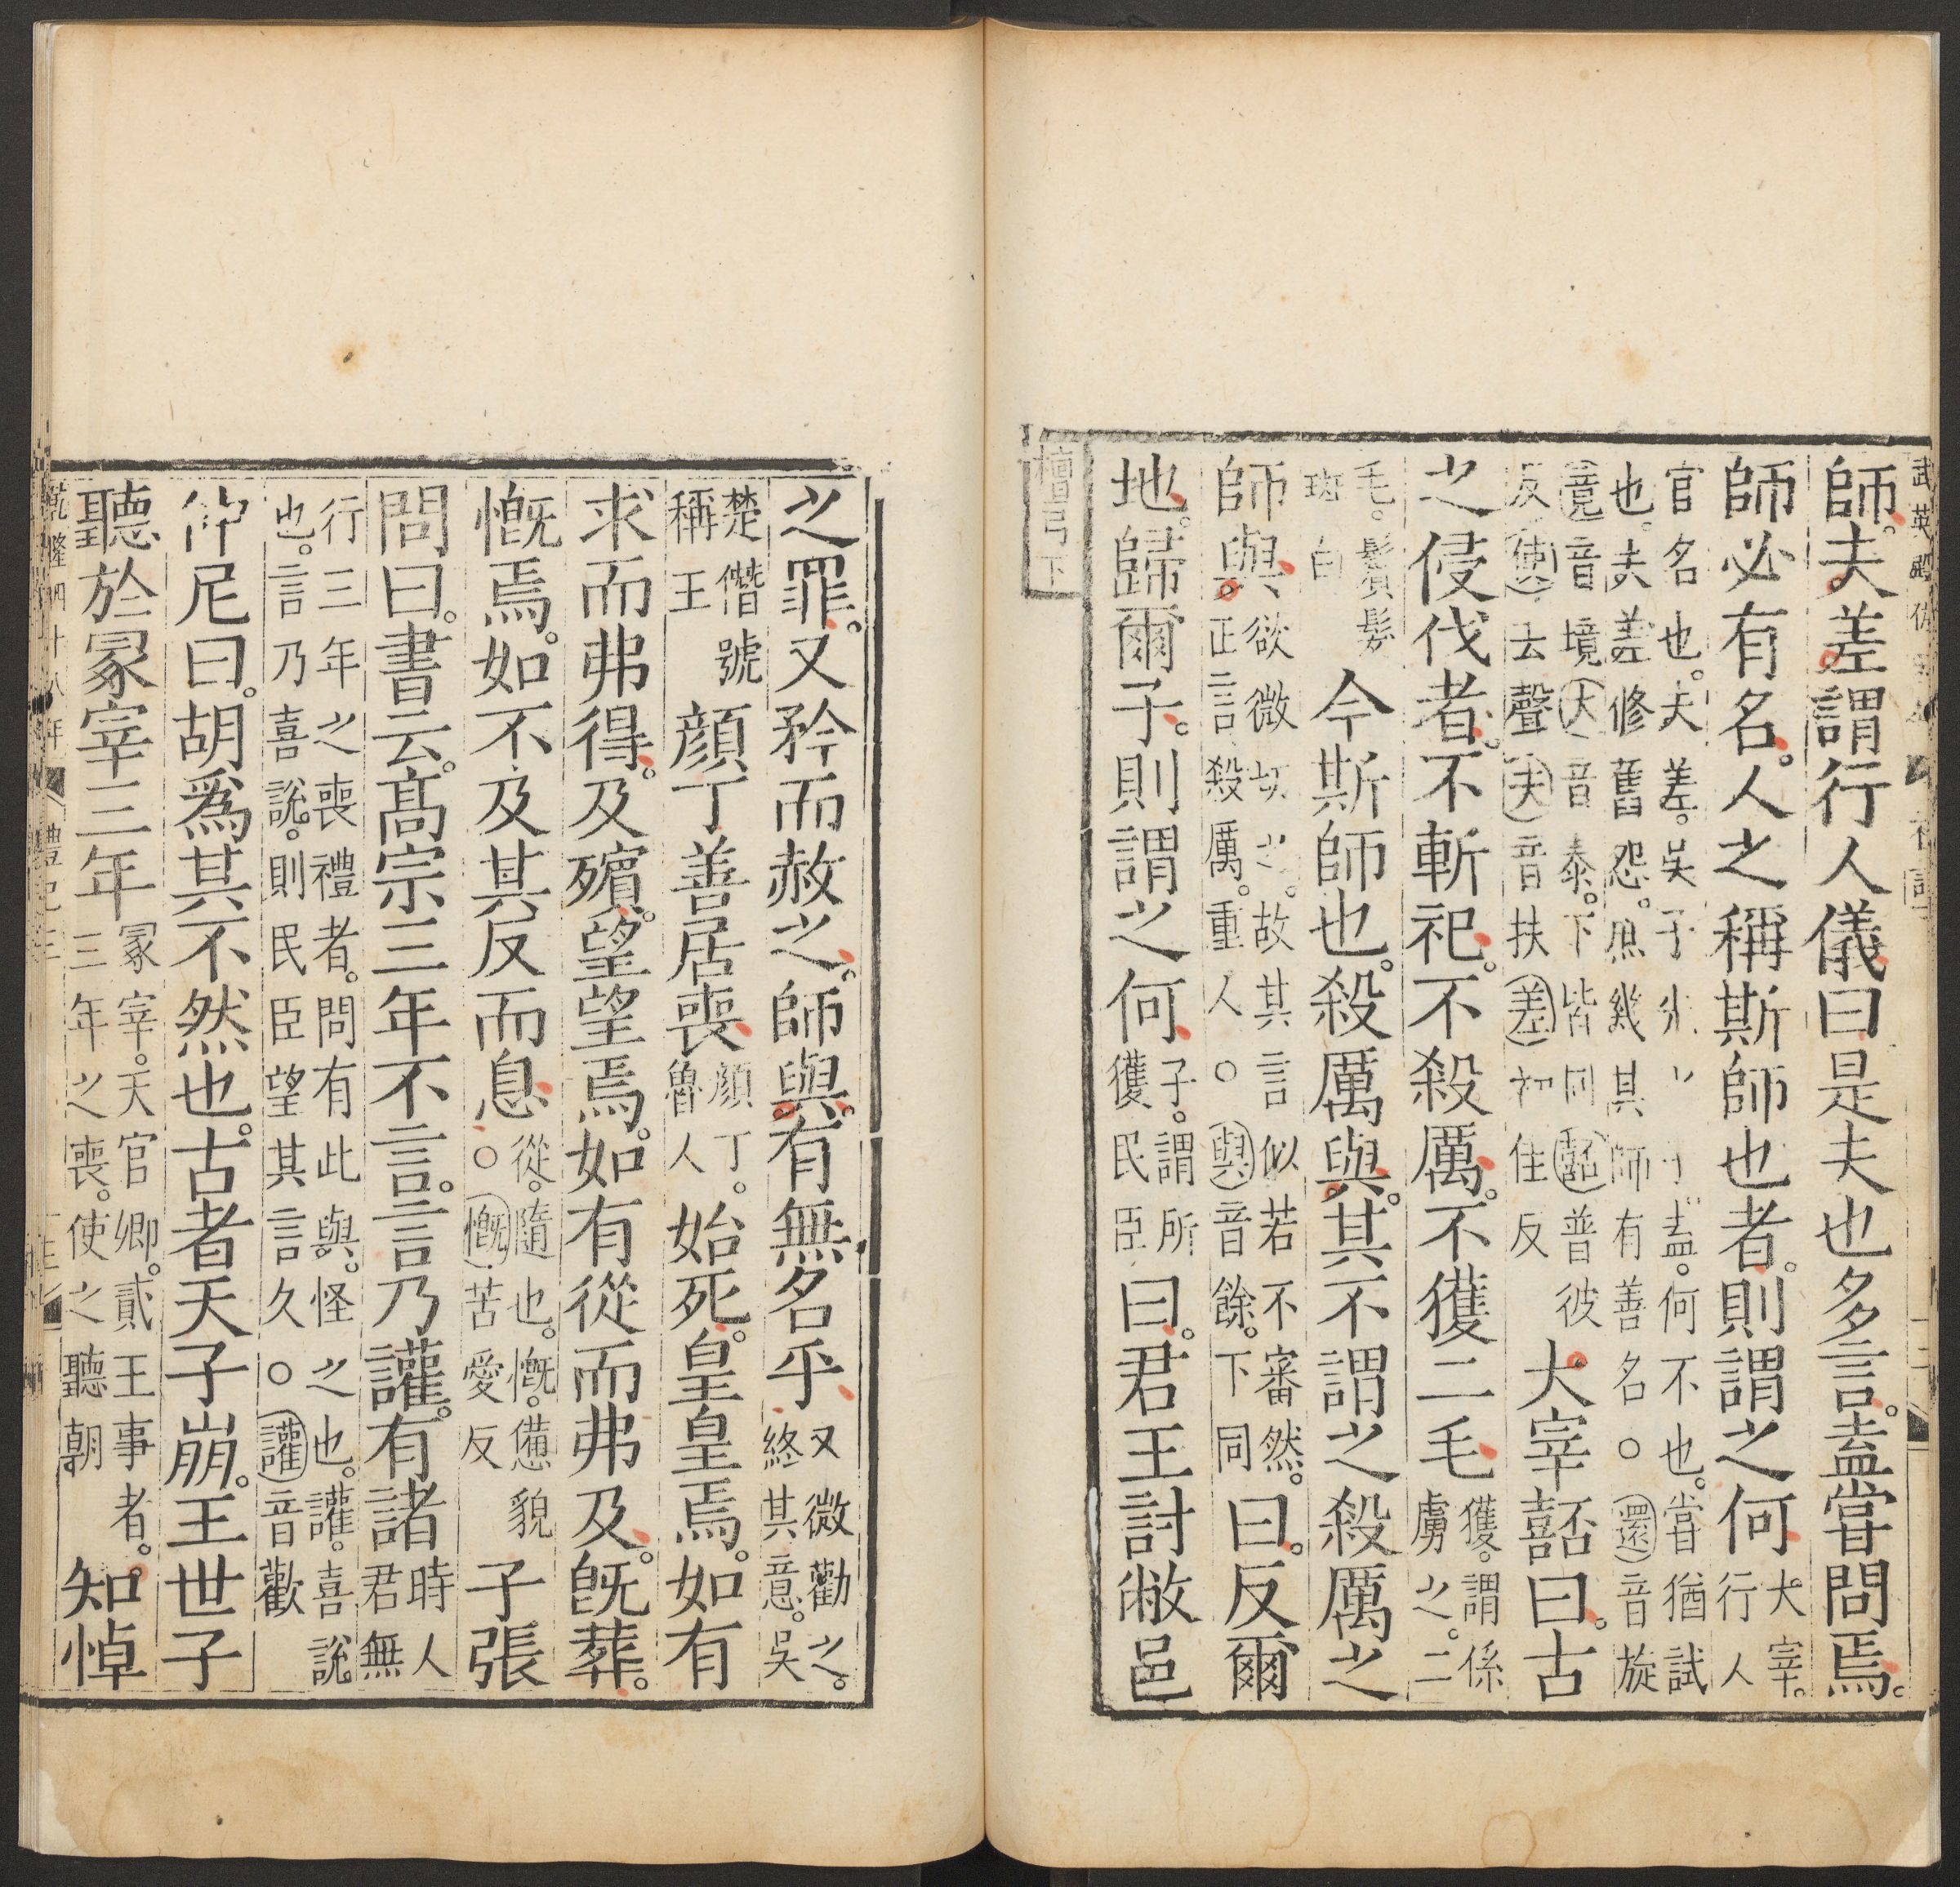 師。夫差謂行人儀曰是夫也多言。盍嘗問焉。
師必有名。人之稱斯師也者。則謂之何大宰。行人
官名也。夫差。吳子盍。何不也。嘗猶試
也。夫差修舊怨。庶幾其師有善名○還音旋
竟音境大音泰。下皆同嚭普彼
反使去聲夫音扶差初佳反大宰嚭曰。古
之侵伐者。不斬祀。不殺厲。不獲二毛獲。謂係虜之。二
毛。鬢髮斑白今斯師也。殺厲與。其不謂之殺厲之
師與。欲微切之。故其言似若不審然。正言殺厲。重人○與音餘。下同曰。反爾
地。歸爾子。則謂之何子。謂所獲民臣曰。君王討敝邑
檀弓下
之罪。又矜而赦之。師與。有無名乎又微勸之。終其意。吳
楚僭號稱王顏丁善居喪顏丁。魯人始死。皇皇焉。如有
求而弗得。及殯。望望焉。如有從而弗及。既葬。
慨焉。如不及其反而息從。隨也。慨。憊貌○慨苦愛反子張
問曰。書云。高宗三年不言。言乃讙。有諸時人君無
行三年之喪禮者。問有此與。怪之也。讙。喜說
也。言乃喜說。則民臣望其言久○讙音歡
仲尼曰。胡爲其不然也。古者天子崩。王世子
聽於冢宰三年冢宰。天官卿。貳王事者。三年之喪。使之聽朝知悼
乾隆四十八年 禮記三